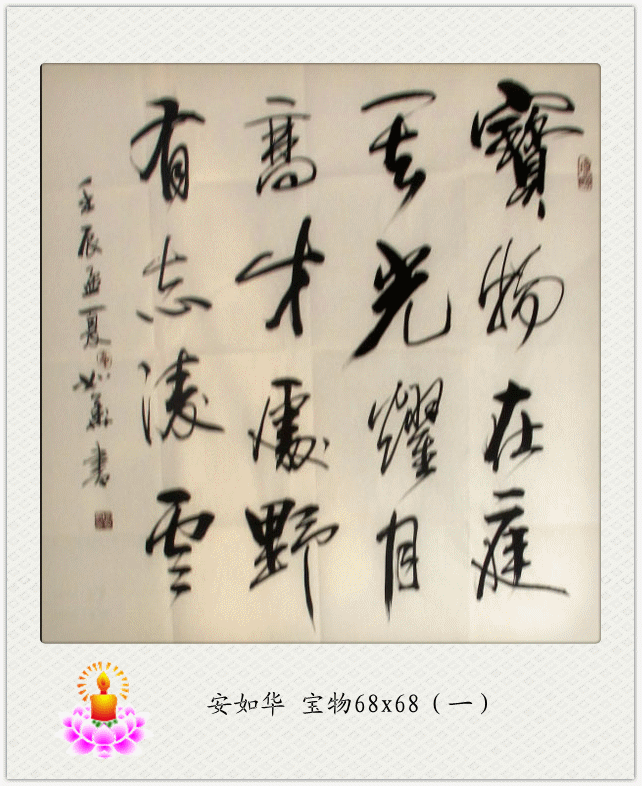 寶物在庭
其光燿月
高才處野
有志淩雲
壬辰孟夏如華書
安如华 宝物68x68（一）